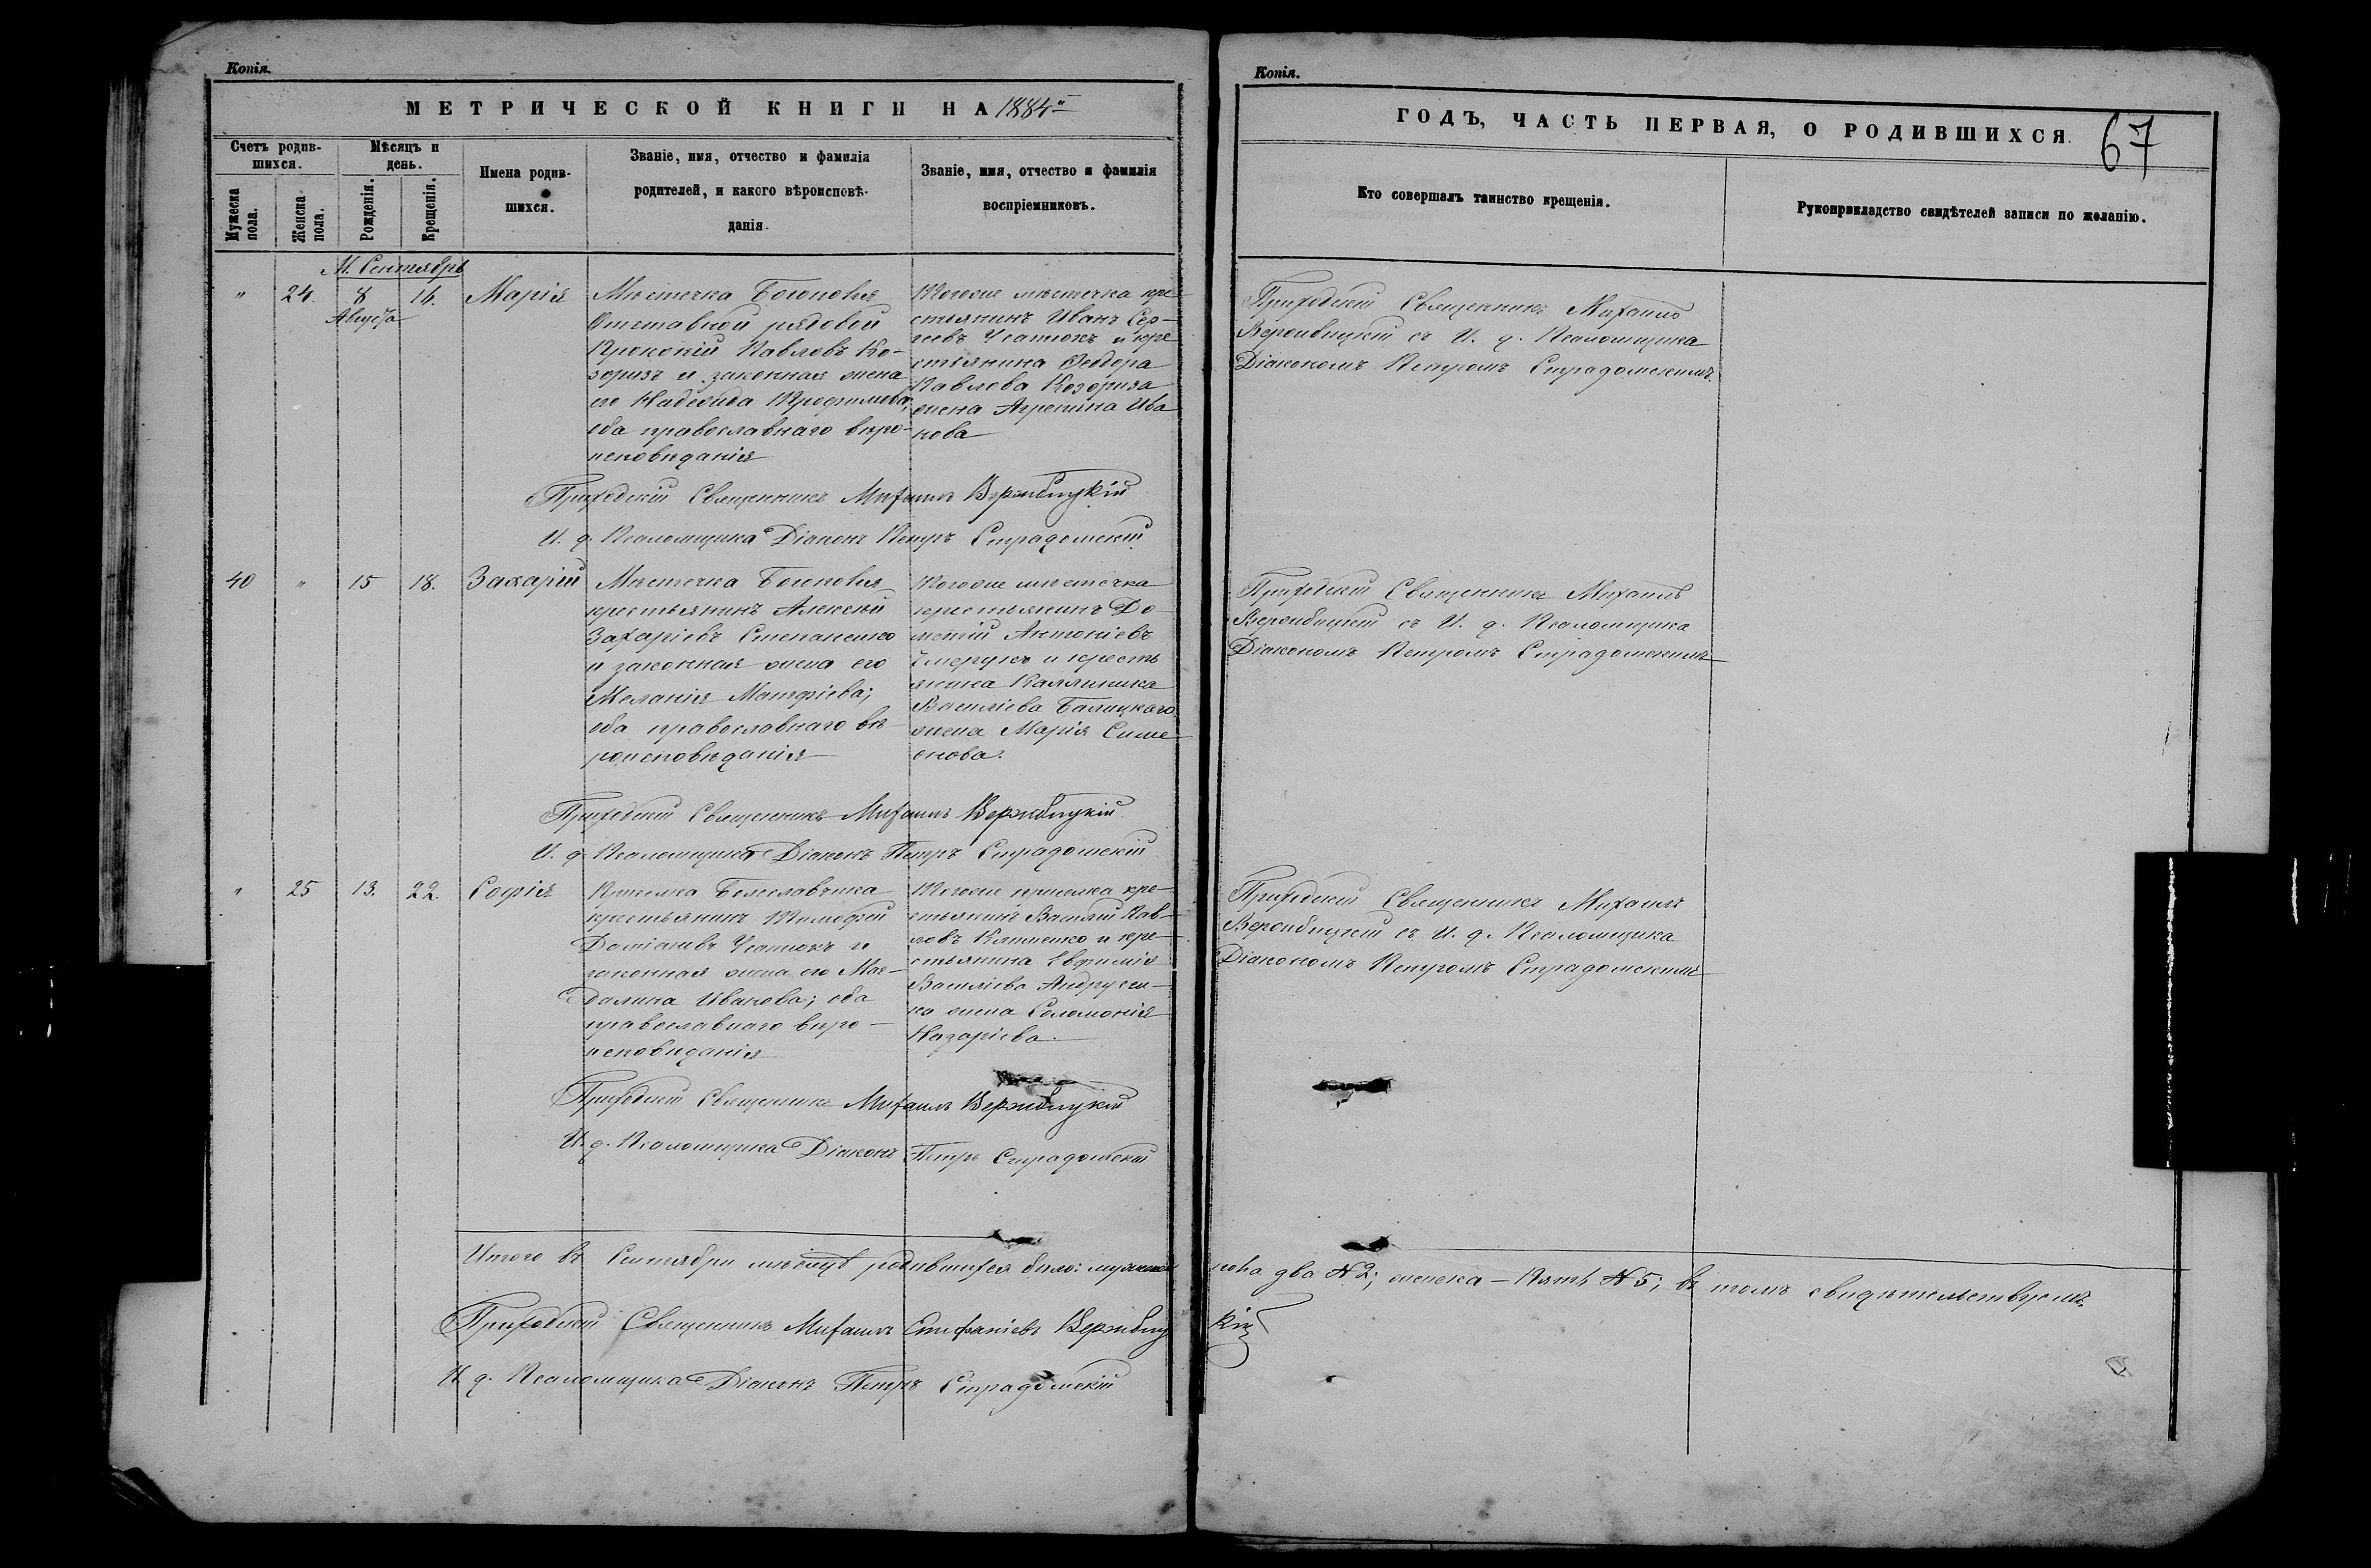 Копія.
МЕТРИЧЕСКОЙ КНИГИ НА 1884
Счетъ родив-
шихся.
Мѣсяцъ и
день.
Мужеска
пола.
Женска
пола.
Рожденія.
Крещенія.
Имена родив-
шихся.
Званіе, имя, отчество и фамилія
родителей, и какого вѣроисповѣ-
данія.
Званіе, имя, отчество и фамилія
воспріемниковъ.
М. Сентябрь
" 24. 8 16. Марія
Августа
Мѣстечка Богополя
Отставной рядовой
Прокопій Павловъ Ко-
зоризъ и законная жена
его Надежда Трофимова,
оба православнаго вѣро-
исповѣданія
Тогоже мѣстечка кре
стьянинъ Иванъ Сер-
геевъ Усатюкъ и кре
стьянина Феодора
Павлова Козориза
жена Агрепина Ива
нова
Приходскій Священникъ Михаилъ Вержбицкій
И. д. Псаломщика Діаконъ Петръ Страдомскій
40 " 15 18. Захарій
Мѣстечка Богополя
крестьянинъ Алексѣй
Захаріевъ Степаненко
и законная жена его
Меланія Матфіева;
оба православнаго вѣ-
роисповѣданія
Тогоже мѣстечка
крестьянинъ До
метій Антоніевъ
и кресть
янина Каллиника
Василіева Балицкаго
жена Марія Симе
онова.
Приходскій Священникъ Михаилъ Вержбицкій
И. д. Псаломщика Діаконъ Петръ Страдомскій
" 25 13. 22. Софія
Приселка Болеславчика
крестьянинъ Тимофей
Даміановъ Усатюкъ и
законная жена его Маг-
далина Иванова; оба
православнаго вѣро-
исповѣданія
Тогоже приселка кре-
стьянинъ Василій Пав-
ловъ Клименко и кре-
стьянина Евфимія
Василіева Андрусен-
ка жена Соломонія
Назаріева.
Приходскій Священникъ Михаилъ Вержбицкій
И. д. Псаломщика Діаконъ Петръ Страдомскій
Итого въ Сентябри мѣсяцѣ родившихся было: мужеска
Приходскій Священникъ Михаилъ Епифаніевъ Вержбиц
И. д. Псаломщика Діаконъ Петръ Страдомскій
Копія.
ГОДЪ, ЧАСТЬ ПЕРВАЯ, О РОДИВШИХСЯ.
67
Кто совершалъ таинство крещенія.
Рукоприкладство свидѣтелей записи по желанію.
Приходскій Священникъ Михаилъ
Вержбицкій съ И. д. Псаломщика
Діакономъ Петромъ Страдомскимъ
Приходскій Священникъ Михаилъ
Вержбицкій съ И. д. Псаломщика
Діакономъ Петромъ Страдомскимъ
Приходскій Священникъ Михаилъ
Вержбицкій съ И. д. Псаломщика
Діакономъ Петромъ Страдомскимъ
пола два №2; женска - Пять №5; въ томъ свидѣтельствуемъ.
кій